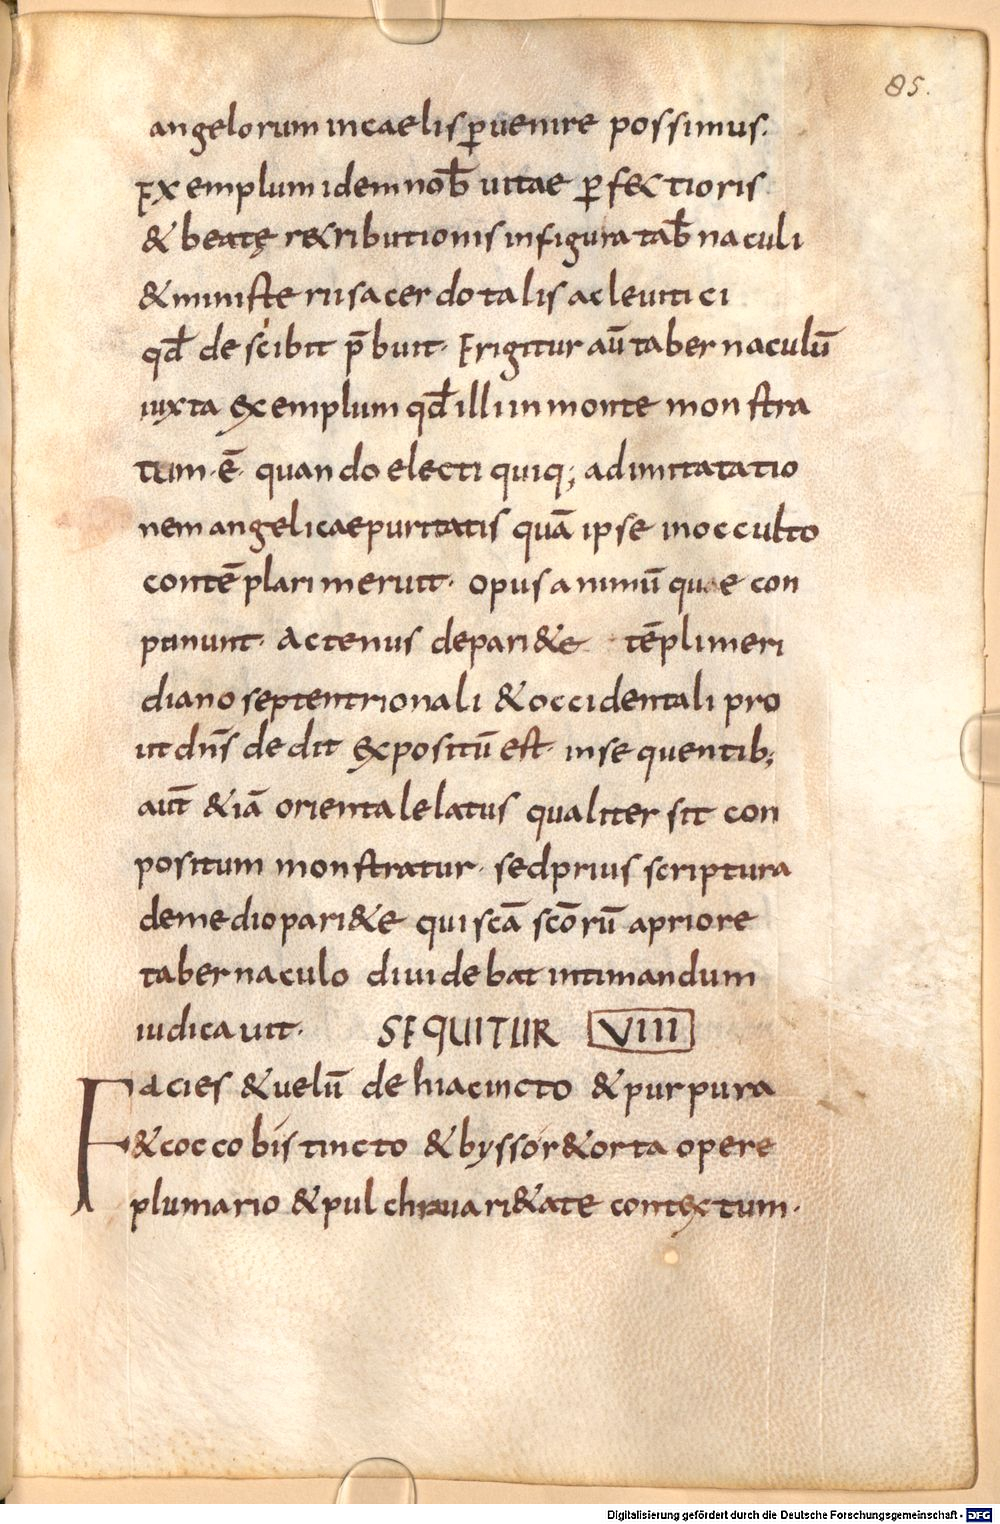 85.
angelorum in caelis p̱uenire possimus.
Exemplum idem nob̄ uitae p̱fectioris
& beatę r&ributionis in figura tab̄naculi
& ministerii sacerdotalis ac leuitici
qđ descibit p̄buit· Erigitur aū tabernaculū
iuxta exemplum qđ illi in monte monstra
tum·ē· quando electi quiq; ad imitatatio
nem angelicae puritatis quā ipse in occulto
contēplari meruit· opus animū quae con
ponunt· Actenus de pari&e tēpli meri
diano septentrionali & occidentali pro
ut dn̄s dedit expositū est· in sequentib;
aut̄ &iā orientale latus qualiter sit con
positum monstratur· sed prius scriptura
de medio pari&e qui scā scōrū a priore
tabernaculo diuidebat intimandum
iudicauit· SEQUITUR VIII
Facies & uelū de hiacincto & purpura
& cocco bis tincto & bysso r&orta opere
plumario & pulchra uari&ate contextum·
Digitalisierung gefördert durch die Deutsche Forschungsgemeinschaft - DFG